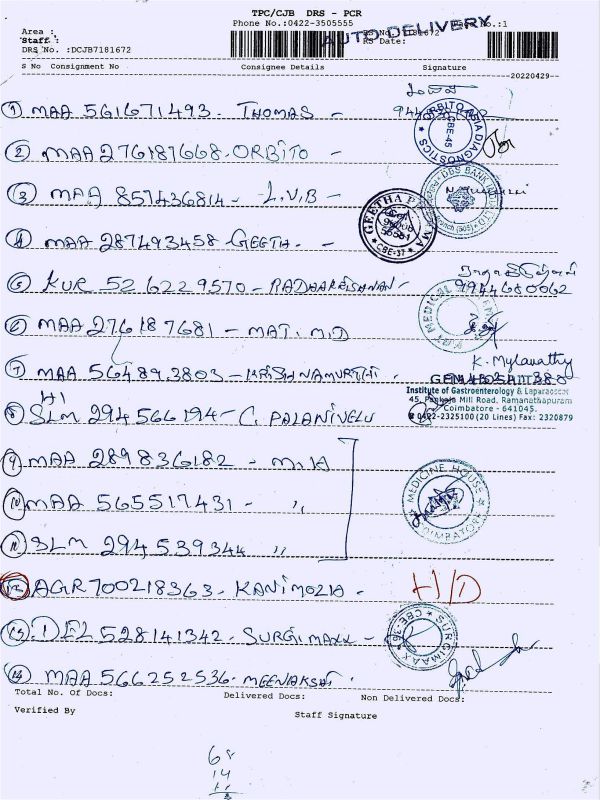 TPC/CJB DRS - PCR
Phone No.:0422-3505555
Area :
Staff :
DRS No. :DCJB7181672
RS Date:
AUTO DELIVERY
:1
S No Consignment No Consignee Details Signature
20220429
1 MAA 561671493 - THOMAS -
ORBITO ASIA DIAGNOSTICS ★ CBE-45
2 MAA 276187668 - ORBITO -
3 MAA 857436814 - L.V.B -
DBS BANK
4 MAA 287493458 - GEETH. -
GEETHA PHARMA CBE-37
5 KUR 526229570 - RADHAKRISHNAN -
9944680062
6 MAA 276187681 - MAT. M.D
MEDICAL
7 MAA 564893803 - KRISHNAMURTHI.
K. Mylavathy
GEM HOSPITAL
Institute of Gastroenterology & Laparoscopic
45, Pankaja Mill Road, Ramanathapuram
Coimbatore - 641045.
0422-2325100 (20 Lines) Fax: 2320879
HI
8 SLM 294566194 - C. PALANIVELU
9 MAA 289836182 - M.H
10 MAA 565517431 - "
MEDICINE HOUSE COIMBATORE
11 SLM 294539344 "
12 AGR 700218363 - KANIMOZIA - H/D
13 DEL 528141342 - SURGIMAXX -
SURGIMAAX CBE-36
14 MAA 566252536 - MEENAKSHI.
Total No. Of Docs: Delivered Docs: Non Delivered Docs:
Verified By Staff Signature
68
14